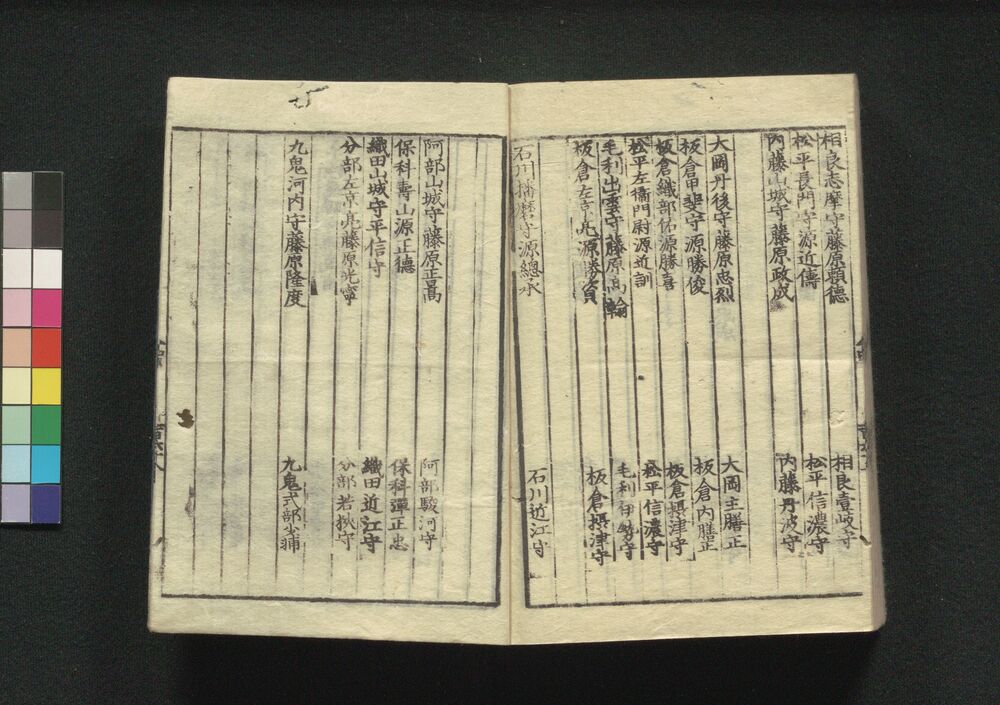 相良志摩守藤原頼德 相良壹岐守
松平長門守源近儔 松平信濃守
内藤山城守藤原政成 内藤丹波守
大岡丹後守藤原忠烈 大岡主膳正
板倉甲斐守源勝俊 板倉内膳正
板倉織部佑源勝喜 板倉摂津守
松平左衞門尉源近訓 松平信濃守
毛利出雲守藤原高翰 毛利伊勢守
板倉左京亮源勝資 板倉摂津守
石川播磨守源總承 石川近江守
阿部山城守藤原正暠 阿部駿河守
保科壽山源正德 保科彈正忠
織田山城守平信守 織田近江守
分部左京亮藤原光寧 分部若狭守
九鬼河内守藤原隆度 九鬼式部少輔